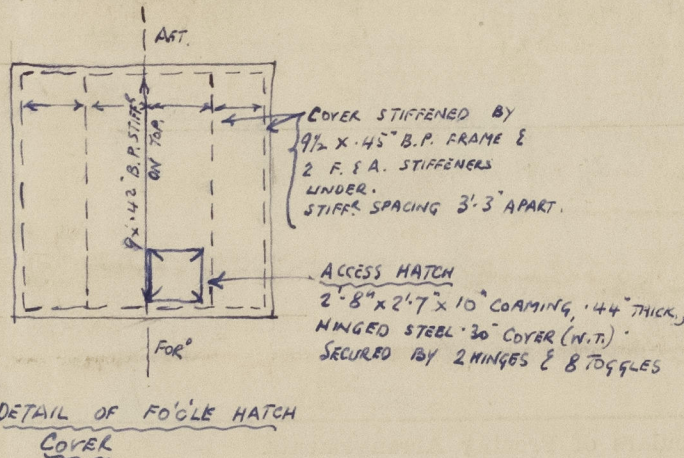 AFT.
9 x .42" B.P. STIFFR
ON TOP.
COVER STIFFENED BY
9½ x .45" B.P. FRAME &
2 F. & A. STIFFENERS
UNDER.
STIFFR SPACING 3'-3" APART.
ACCESS HATCH
2'-8" x 2'-7" x 10" COAMING, .44" THICK,
HINGED STEEL .30" COVER (W.T.)
SECURED BY 2 HINGES & 8 TOGGLES
FORD
DETAIL OF FO'C'LE HATCH
COVER